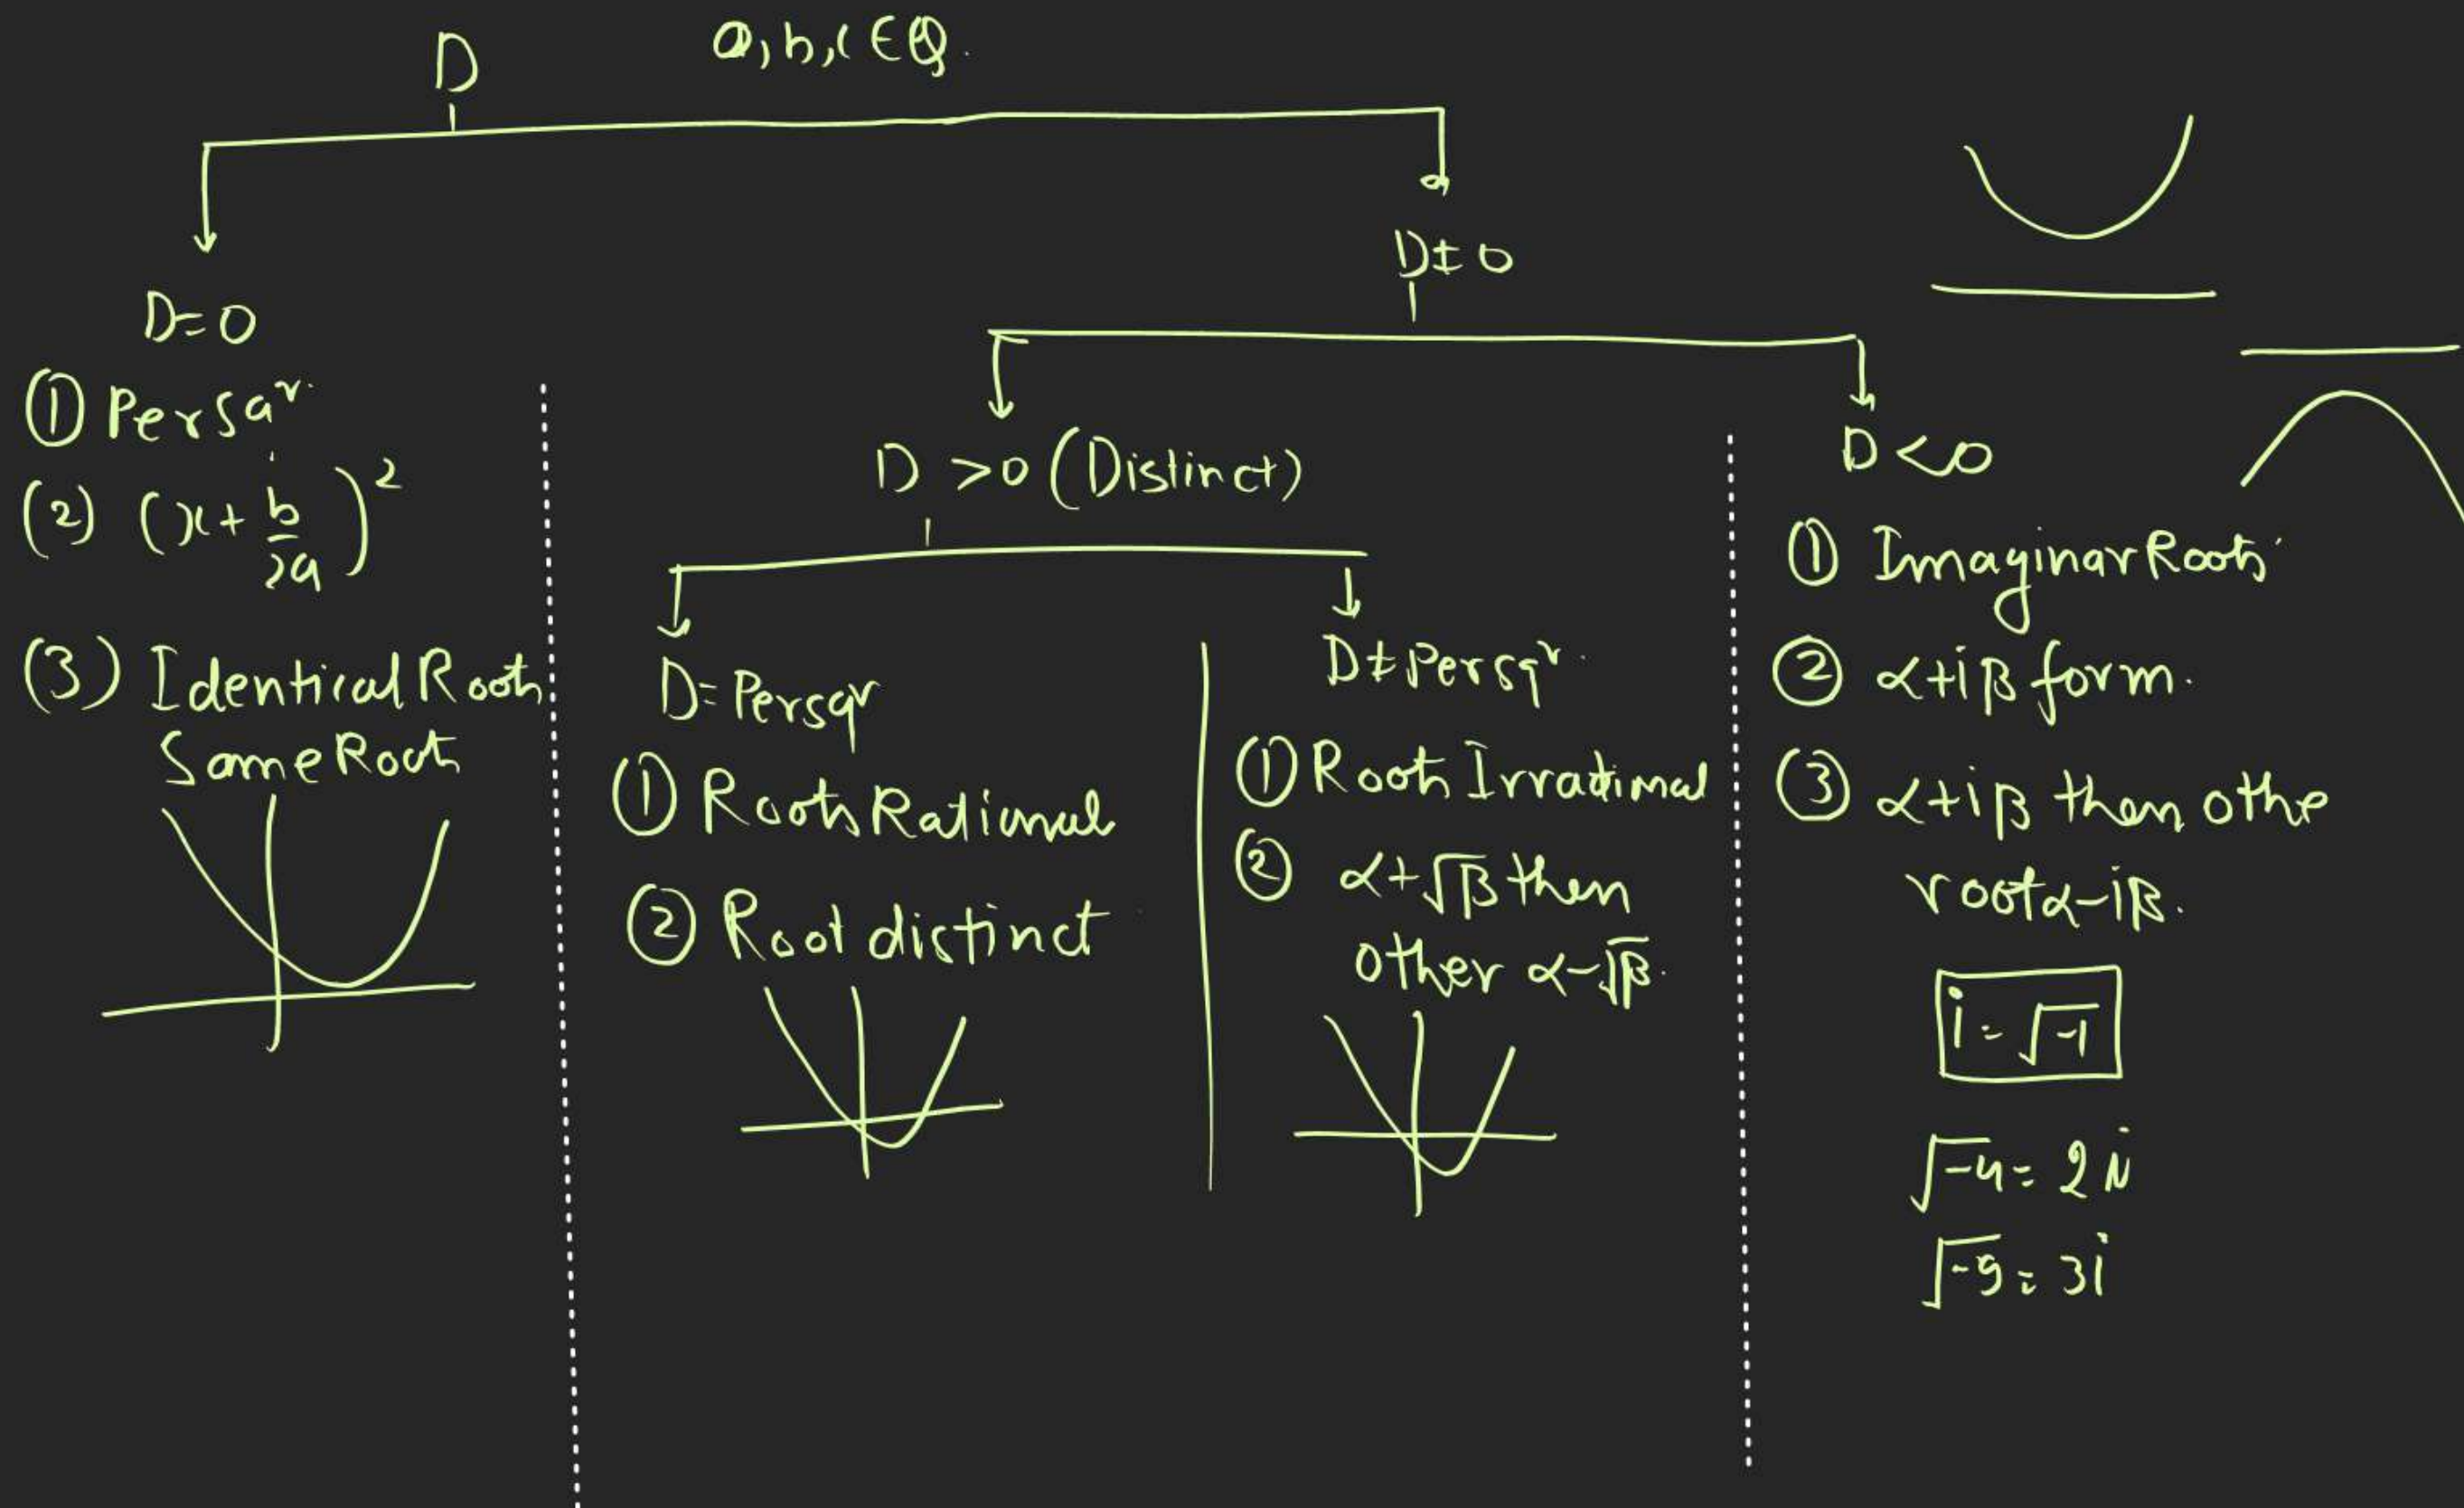 D
a, b, c ∈ Q.
D = 0
① Persqr.
(2) (x + b/2a)²
(3) Identical Roots
Same Roots
D ≠ 0
D > 0 (Distinct)
D = Persqr
① Roots Rational
② Root distinct
D ≠ Persqr.
① Roots Irrational
② α + √β then
other α - √β.
D < 0
① Imaginar Roots
② α + iβ form.
③ α + iβ then othe
root α - iβ.
i = √-1
√-4 = 2i
√-9 = 3i